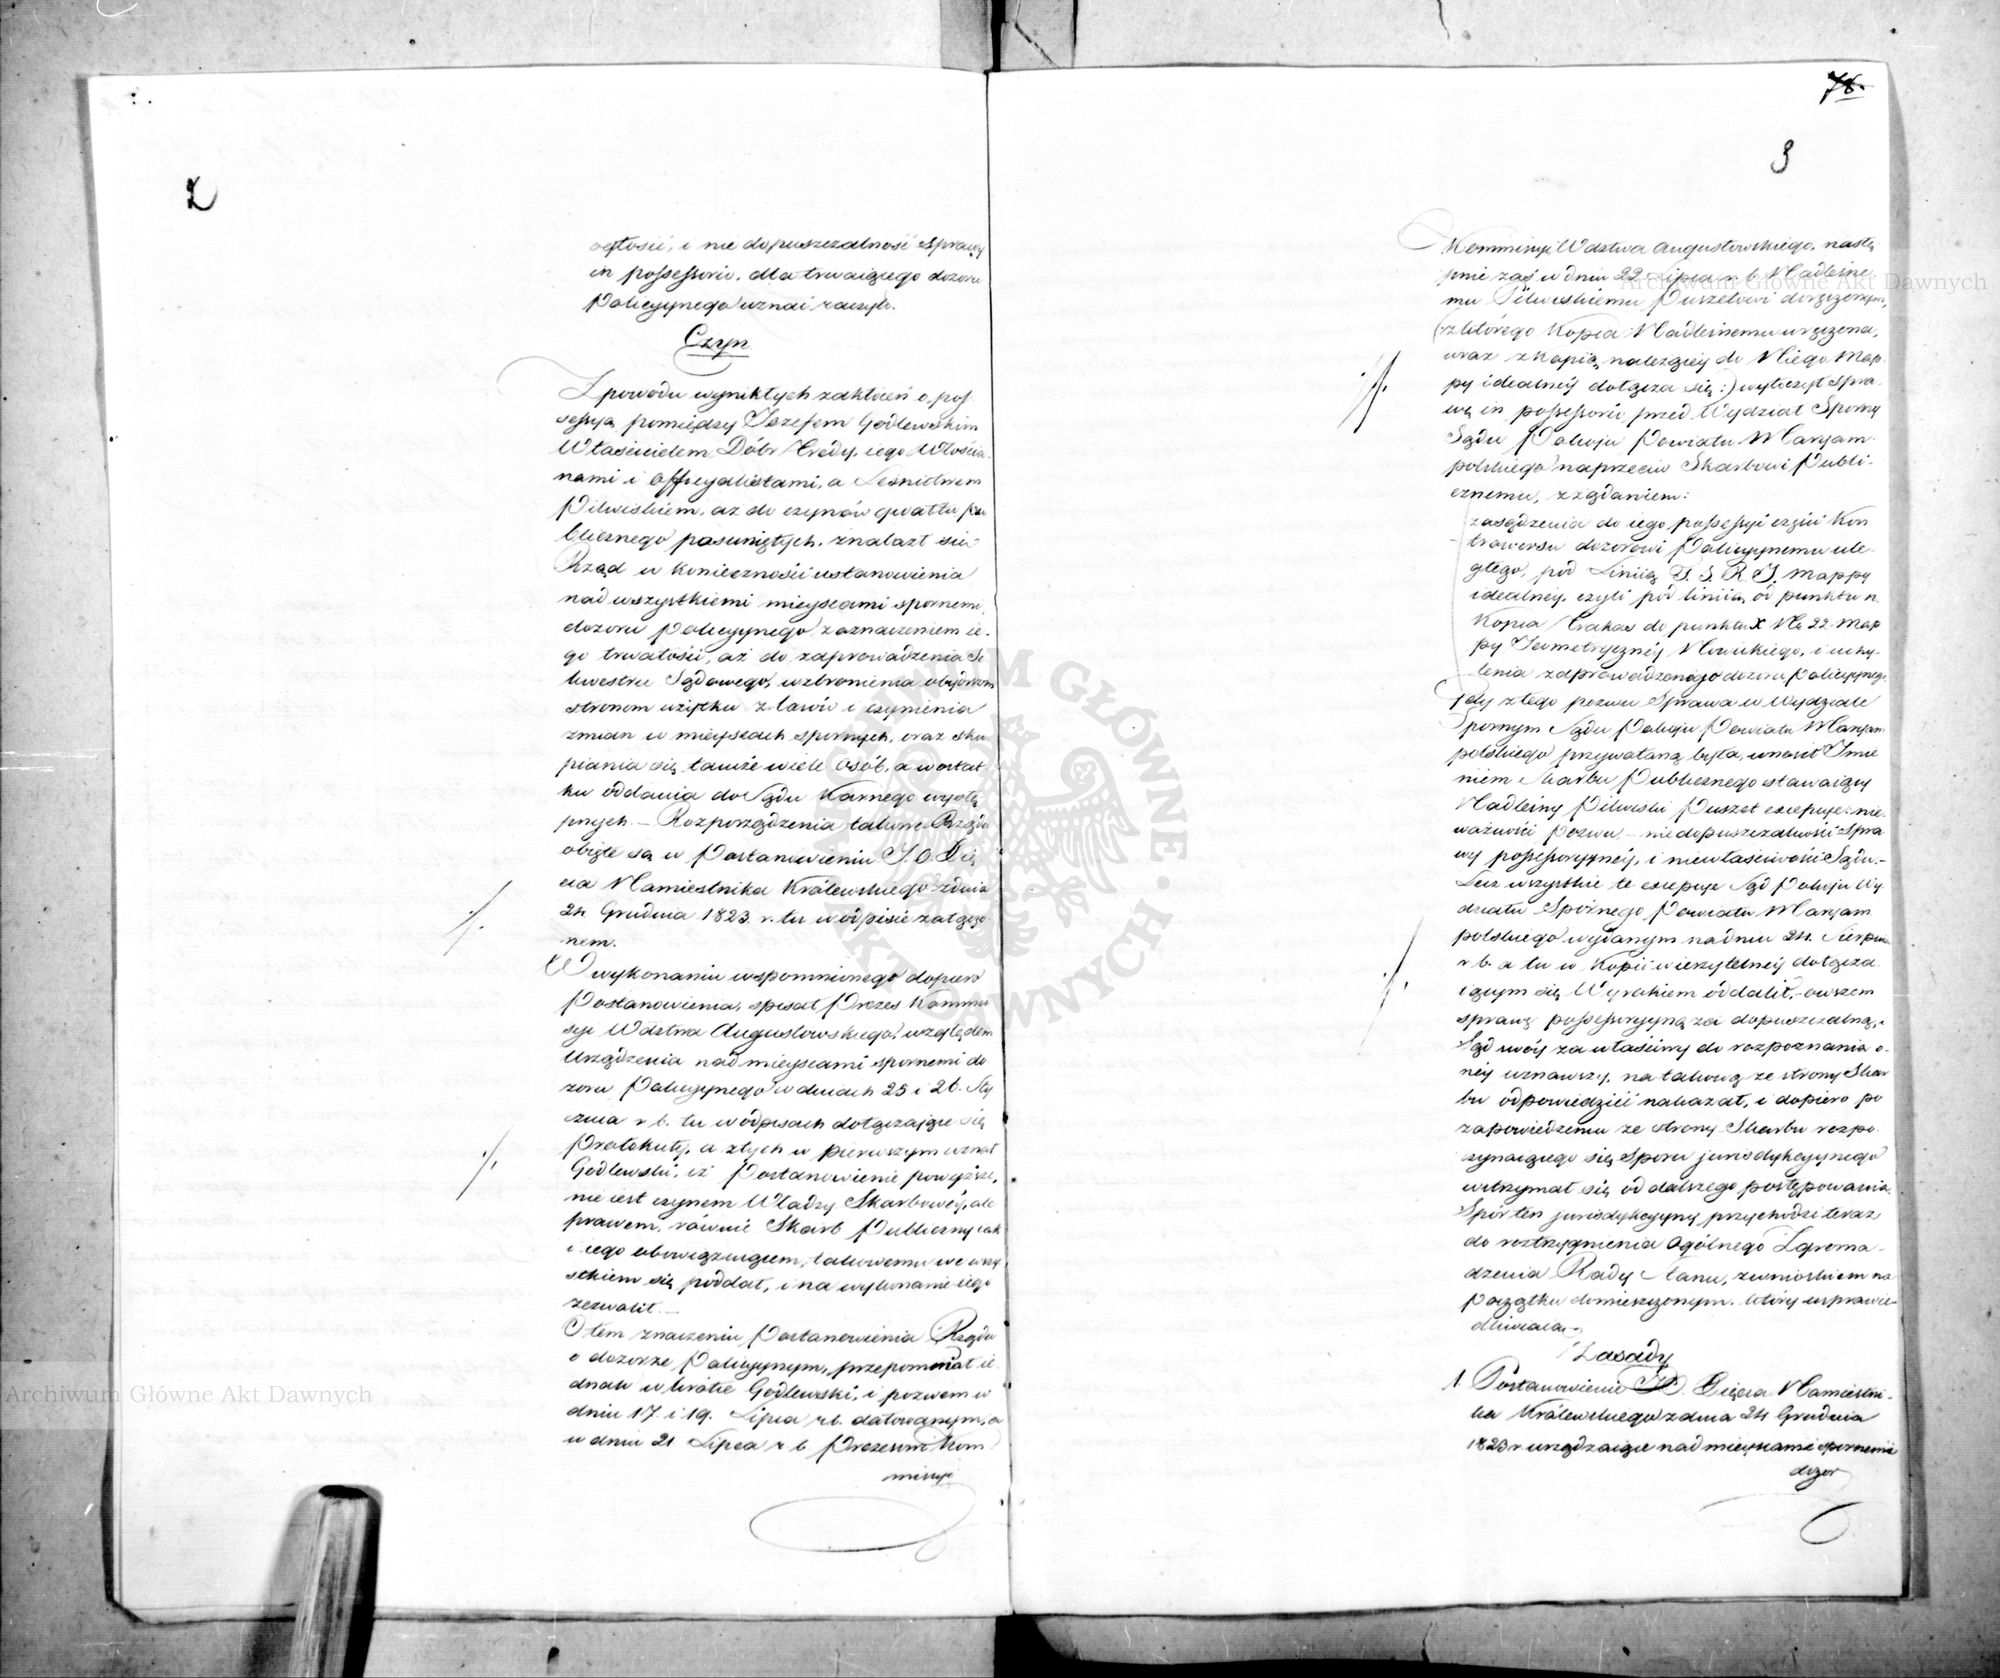 2
ogłosić, i nie dopuszczalność Sprawy
in possessorio, dla trwaiącego dozoru
Policyynego uznać raczyła.
Czyn
Z powodu wynikłych zakłóceń o pos-
sessyą pomiędzy Jozefem Godlewskim
Właścicielem Dóbr Kredy, iego Włościa-
nami i officyalistami, a Leśnictwem
Pilwiskiem, aż do czynów gwałtu pu-
blicznego posuniętych, znalazł się
Rząd w konieczności ustanowienia
nad wszystkiemi mieyscami spornemi,
dozoru Policyynego z oznaczeniem ie-
go trwałości, aż do zaprowadzenia Se-
kwestru Sądowego, wzbronienia obydwom
stronom użytku z lasów i czynienia
zmian w mieyscach spornych, oraz sku-
piania się tamże wiele osób, a w ostat-
ku oddania do Sądu Karnego wystę-
pnych. — Rozporządzenia takowe Rządu
obięte są w Postanowieniu J. O. Xię-
cia Namiestnika Królewskiego z dnia
24 Grudnia 1823 r. tu w odpisie załączo-
nem.
W wykonaniu wspomnionego dopiero
Postanowienia, spisał Prezes Kommis-
syi Wdztwa Augustowskiego, względem
urządzenia nad mieyscami spornemi do-
zoru Policyynego w dniach 25 i 26. Sty-
cznia r. b. tu w odpisach dołączaiące się
Protokuły, a z tych w pierwszym uznał
Godlewski, iż Postanowienie powyższe,
nie iest czynem Władzy Skarbowey, ale
prawem, równie Skarb Publiczny iak
i iego obowiązuiącem, takowemu we wszy-
stkiem się poddał, i na wykonanie iego
zezwolił. —
O tem znaczeniu Postanowienia Rządu
o dozorze Policyynym, przepomniał ie-
dnak wkrótce Godlewski, i pozwem w
dniu 17 i 19. Lipca r. b. datowanym, a
w dniu 21 Lipca r. b. Prezesowi Kom-
missyi
78.
3
Kommissyi Wdztwa Augustowskiego, nastę-
pnie zaś w dniu 22 Lipca r. b. Nadleśne-
mu Pilwiskiemu Puszetowi doręczonym,
(: z którego Kopia Nadleśnemu wręczona,
wraz z Kopią należącey do Niego Map-
py idealney dołącza się :) wytoczył spra-
wę in possessorio przed Wydział Sporny
Sądu Pokoju Powiatu Maryam-
polskiego naprzeciw Skarbowi Publi-
cznemu, z żądaniem:
zasądzenia do iego possessyi części kon-
trowersu dozorowi Policyynemu ule-
głego, pod Liniią T. S. R. J. mappy
idealney, czyli pod liniią, od punktu n.
Kopia Crakas do punktu X No 22 Map-
py Jeometryczney Nowickiego, i uchy-
lenia zaprowadzonego dozoru policyynego.
Gdy z tego pozwu Sprawa w Wydziale
Spornym Sądu Pokoju Powiatu Maryam-
polskiego przywołaną była, wnosił Imie-
niem Skarbu Publicznego stawaiący
Nadleśny Pilwiski Puszet excepcye: nie-
ważności pozwu, — niedopuszczalności Spra-
wy possessoryyney, i niewłaściwości Sądu. —
Lecz wszystkie te excepcye Sąd Pokoju Wy-
działu Spornego Powiatu Maryam-
polskiego wydanym na dniu 24. Sierpnia
r. b. a tu w Kopii wierzytelney dołącza-
iącym się Wyrokiem oddalił, — owszem
sprawę possessoryyną za dopuszczalną, i
Sąd swóy za właściwy do rozpoznania o-
ney uznawszy, na takową ze strony Skar-
bu odpowiedzić nakazał, i dopiero po
zapowiedzeniu ze strony Skarbu rozpo-
czynaiącego się Sporu jurisdykcyynego
wstrzymał się od dalszego postępowania.
Spór ten jurisdykcyyny przychodzi teraz
do roztrzygnienia Ogólnego Zgroma-
dzenia Rady Stanu, z wnioskiem na
początku domieszczonym, który usprawie-
dliwiaią —
Zasady
1. Postanowienie JO. Xięcia Namiestni-
ka Królewskiego z dnia 24 Grudnia
1823 r. urządzaiące nad mieyscami spornemi
dozor
Archiwum Główne Akt Dawnych
Archiwum Główne Akt Dawnych
ARCHIWUM GŁÓWNE AKT DAWNYCH